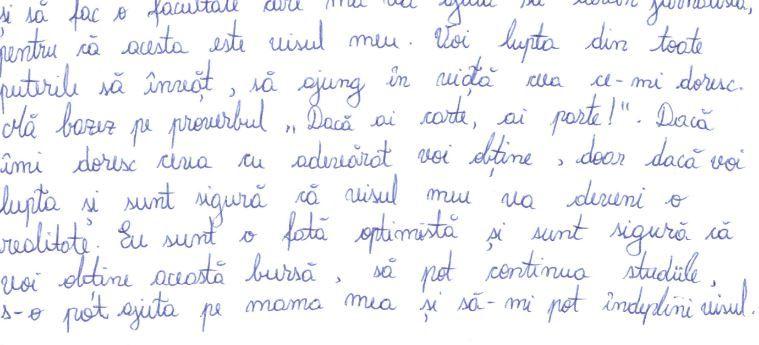 și să fac o facultate care mă va ajuta să devin jurnalistă,
pentru că acesta este visul meu. Voi lupta din toate
puterile să învăț, să ajung în viață cea ce-mi doresc.
Mă bazez pe proverbul „Dacă ai carte, ai parte!". Dacă
îmi doresc ceva cu adevărat voi obține, doar dacă voi
lupta și sunt sigură că visul meu va deveni o
realitate. Eu sunt o fată optimistă și sunt sigură că
voi obține această bursă, să pot continua studiile,
s-o pot ajuta pe mama mea și să-mi pot îndeplini visul.